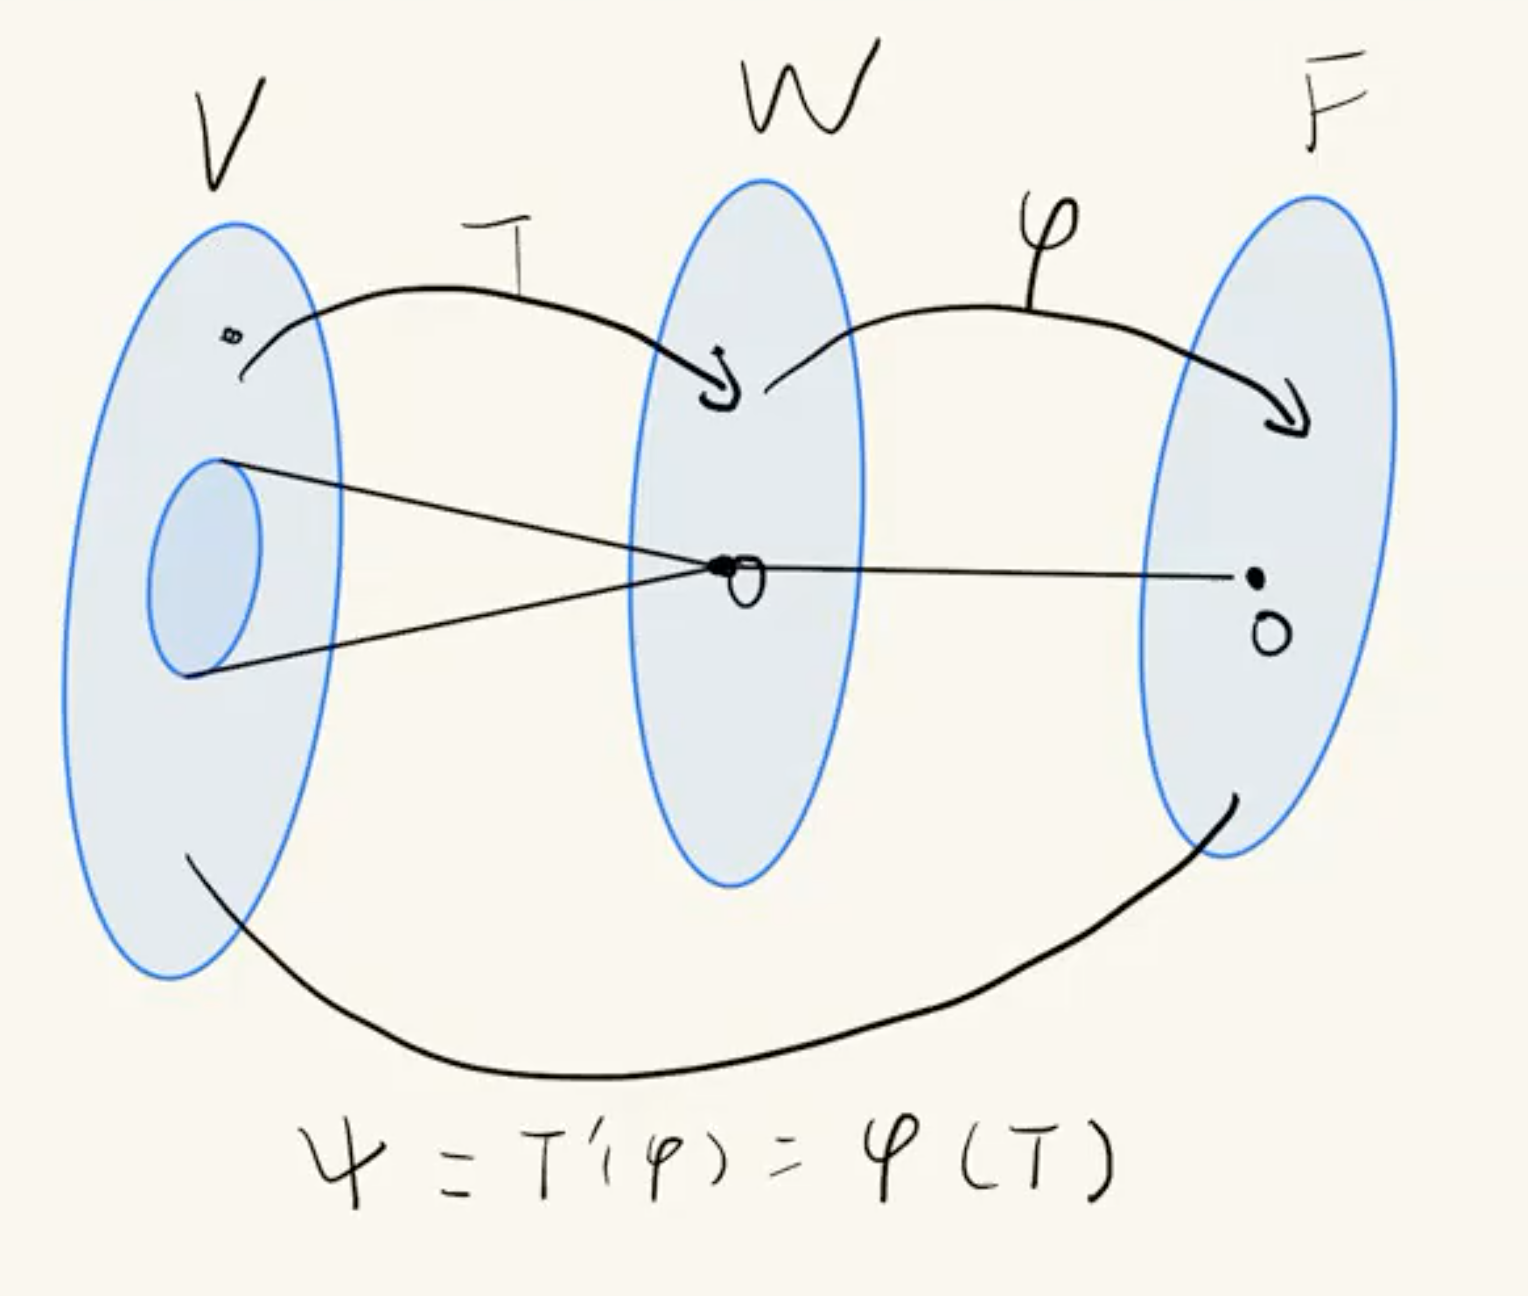 V W F
T φ
0
0
ψ = T'(φ) = φ(T)